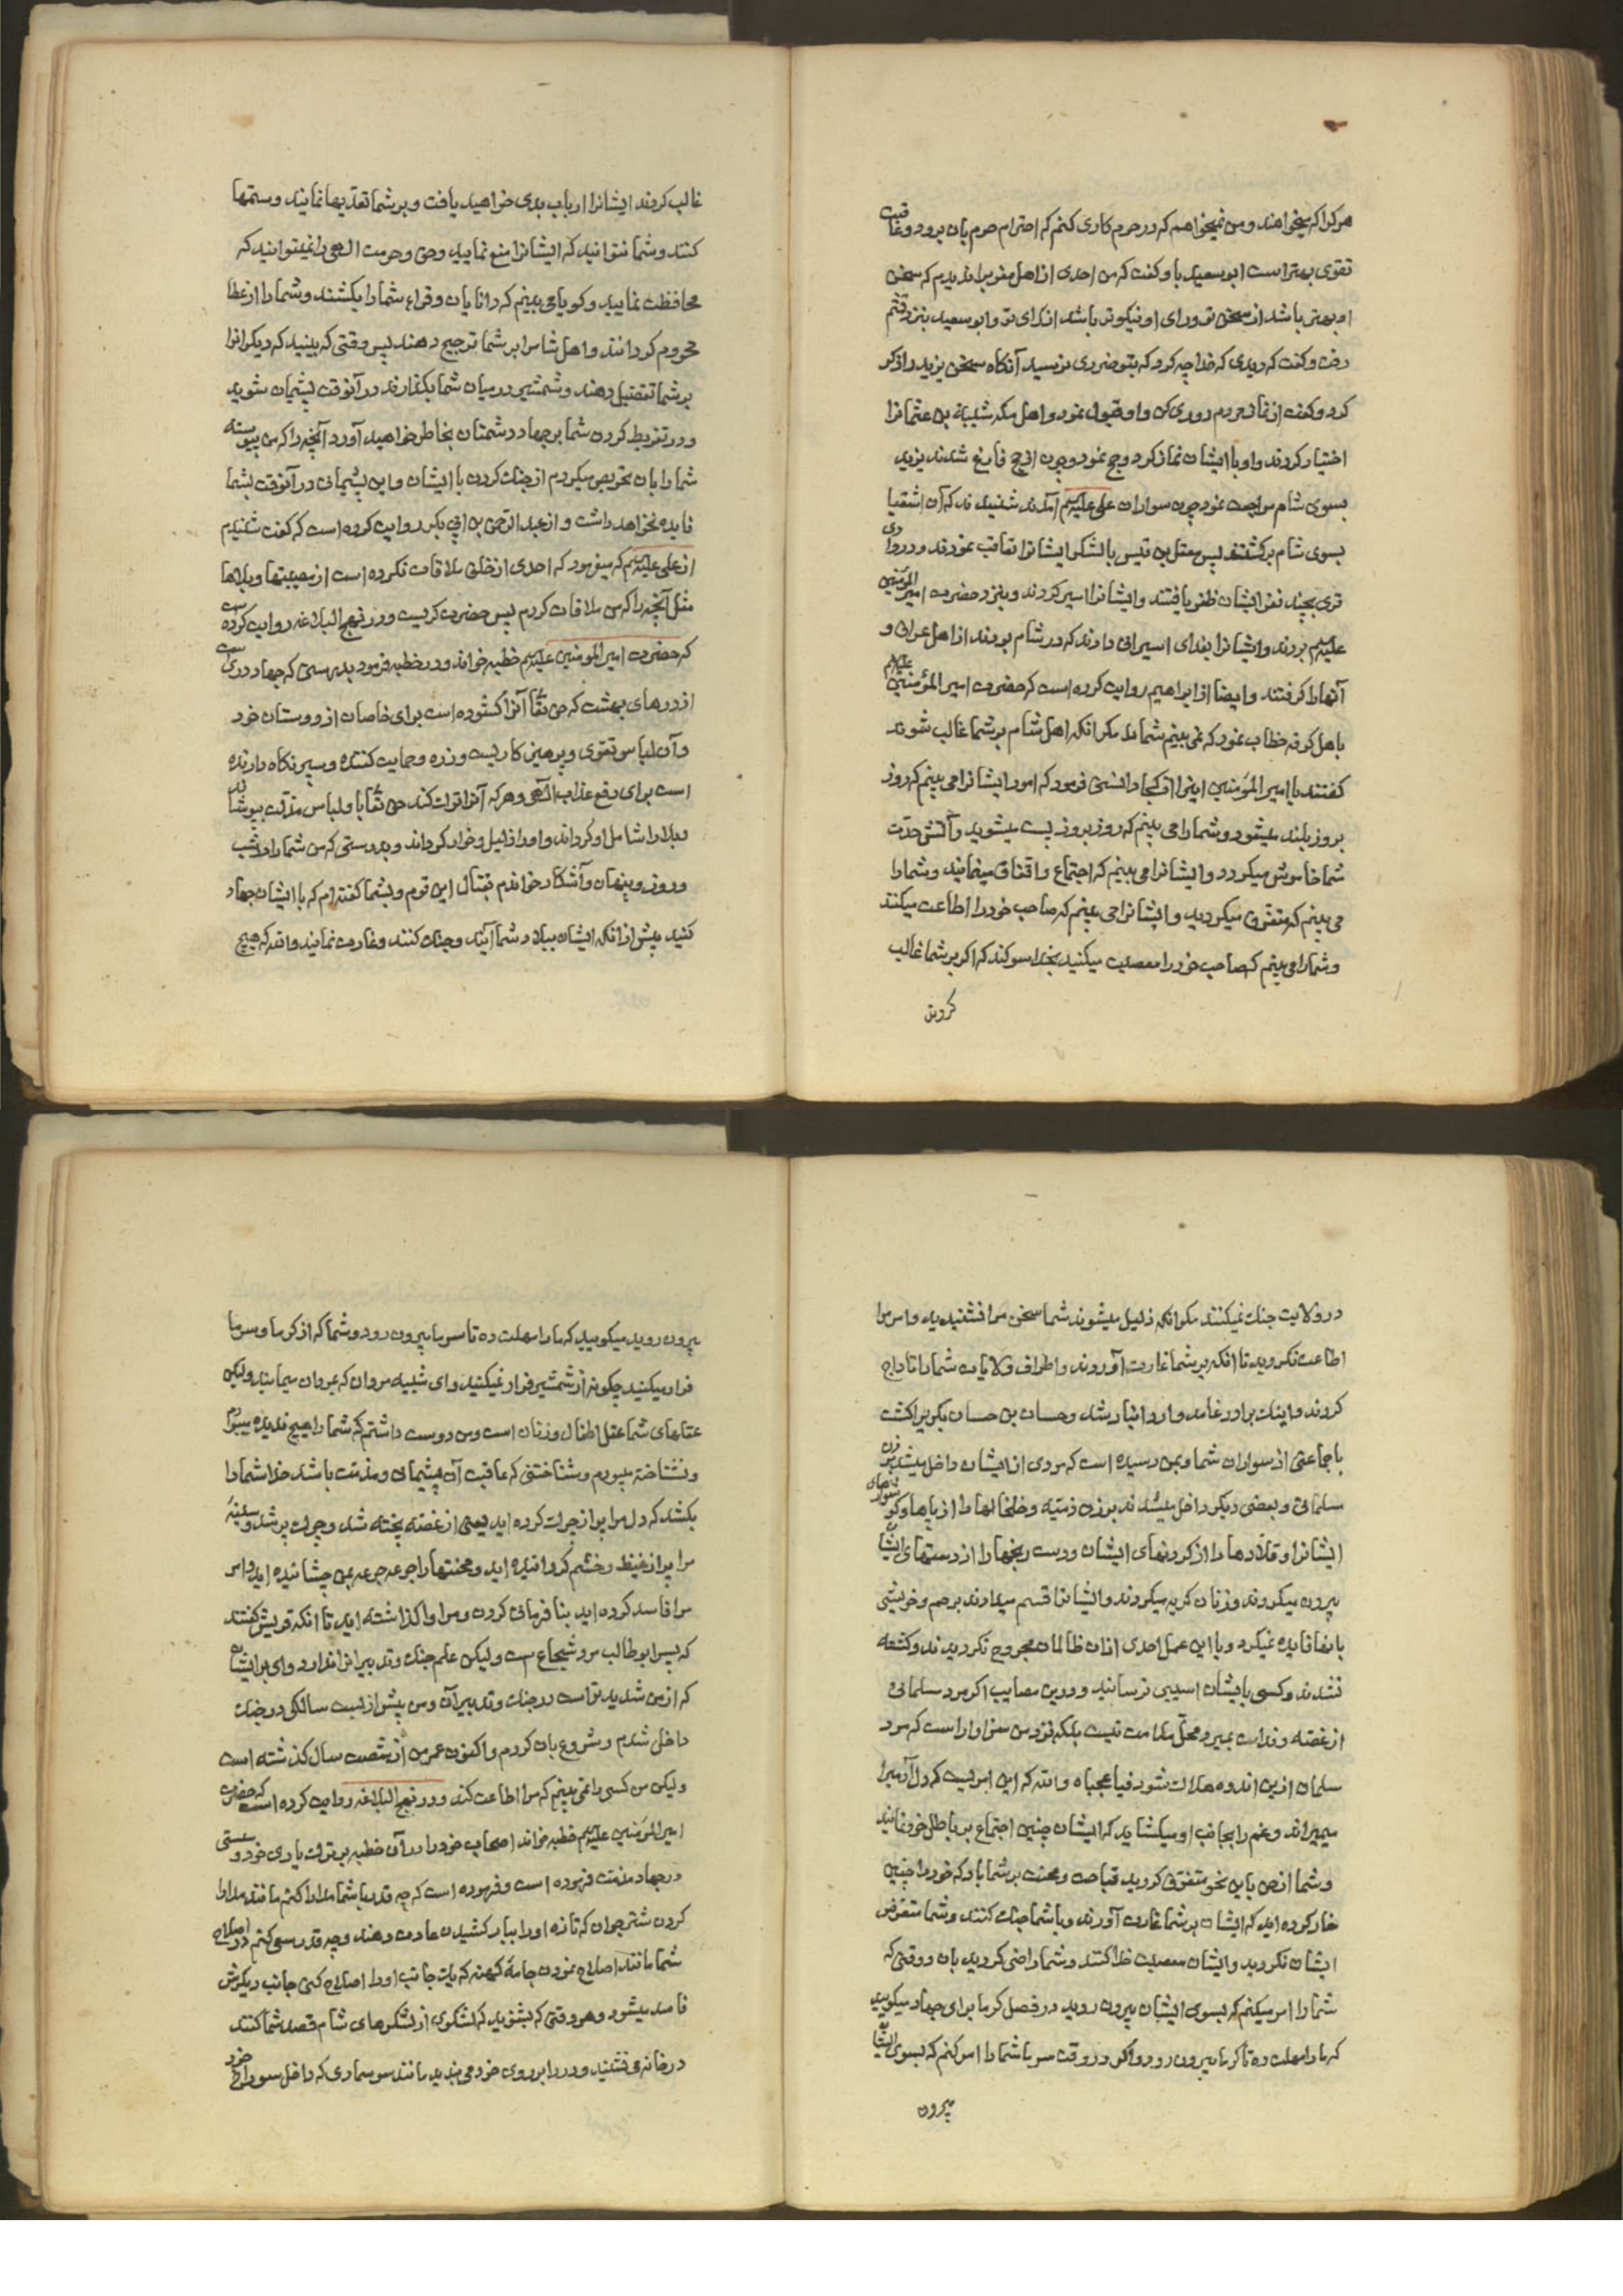 هرکرا که میخواهند و من نمیخواهم که در حرم کاری کنم که احترام حرم بان برود و عاقبت
تقوی بهتر است ابو سعید باو گفت که من احدی از اهل مغرب را ندیدم که سخن
او بهتر باشد از سخن تو و رای او نیکوتر باشد از رای تو و ابو سعید بنزد قثم
رفت و گفت که دیدی که خدا چه کرد که بتو ضرری نرسید آنگاه سخن یزید را ذکر
کرد و گفت از نماز مردم دوری کن و او قبول نمود و اهل مکه شیبة بن عثمانرا
اختیار کردند و او با ایشان نماز کرد و حج نمود و چون از حج فارغ شدند یزید
بسوی شام مراجعت نمود چون سواران علی علیه السلم آمدند شنیدند که آن اشقیا
بسوی شام برگشتند پس معقل بن قیس با لشکر ایشانرا تعاقب نمودند و در وادی
قری بچند نفر ایشان ظفر یافتند و ایشانرا اسیر کردند و بنزد حضرت امیر المؤمنین
علیه السلم بردند و ایشانرا بفدای اسیرانی دادند که در شام بودند از اهل عراق و
آنها را گرفتند و ایضا از ابراهیم روایت کرده است که حضرت امیر المؤمنین علیه السلم
با اهل کوفه خطاب نمود که نمی بینم شما را مگر آنکه اهل شام بر شما غالب شوند
گفتند یا امیر المؤمنین اینرا از کجا دانستی فرمود که امور ایشانرا می بینم که روز
بروز بلند میشود و شما را می بینم که روز بروز پست میشوید و آتش حدّت
شما خاموش میگردد و ایشانرا می بینم که اجتماع و اتفاق مینمایند و شما را
می بینم که متفرق میگردید و ایشانرا می بینم که صاحب خود را اطاعت میکنند
و شما را می بینم که صاحب خود را معصیت میکنید بخدا سوگند که اگر بر شما غالب
کردند
غالب کردند ایشانرا ارباب بدی خواهید یافت و بر شما تعدّیها نمایند و ستمها
کنند و شما نتوانید که ایشانرا منع نمایید و حق و حرمت الهی را نمیتوانید که
محافظت نمایید و گویا می بینم که دانایان و قراء شما را بکشند و شما را از عطا
محروم گردانند و اهل شام را بر شما ترجیح دهند پس وقتی که ببینید که دیگرانرا
بر شما تفضیل دهند و شمشیر در میان شما بگذارند در آنوقت پشیمان شوید
و در تفریط کردن شما بر جهاد دشمنان بخاطر خواهید آورد آنچه را که من پیوسته
شما را بان تحریص میکردم از جنک کردن با ایشان و این پشیمانی در آنوقت بشما
فایده نخواهد داشت و از عبد الرحمن بن ابی بکر روایت کرده است که گفت شنیدم
از علی علیه السلم که میفرمود که احدی از خلق ملاقات نکرده است از مصیبتها و بلاها
مثل آنچه را که من ملاقات کردم پس حضرت گریست و در نهج البلاغه روایت کرده ست
که حضرت امیر المومنین علیه السلم خطبه خواند و در خطبه فرمود بدرستی که جهاد دری ست
از درهای بهشت که حق تعٰا آنرا گشوده است برای خاصان از دوستان خود
و آن لباس تقوی و پرهیزکاریست و زره و حمایت کننده و سپر نگاه دارنده
است برای دفع عذاب الٓهی و هر که آنرا ترک کند حق تعٰا باو لباس مذلّت بپوشاند
و بلا را شامل او گرداند و او را ذلیل و خوار گرداند و بدرستی که من شما را در شب
و روز و پنهان و آشکار خواندم بقتال این قوم و بشما گفته ام که با ایشان جهاد
کنید پیش از آنکه ایشان ببلاد شما آیند و جنک کنند و غارت نمایند و الله که هیچ
در ولایت جنک نمیکنند مگر آنکه ذلیل میشوند شما سخن مرا نشنیدید و امر مرا
اطاعت نکردید تا آنکه بر شما غارت آوردند و اطراف ولایات شما را تاراج
کردند و اینک برادر غامد وارد انبار شد و حسان بن حسان بکری را کشت
با جماعتی از سواران شما و بمن رسیده است که مردی از ایشان داخل میشد بر زن
مسلمانی و بعضی دیگر داخل میشدند بر زن ذمّیه و خلخالها را از پاها و گوشوارهای
ایشانرا و قلادها را از گردنهای ایشان و دست رنجها را از دستهای ایشان
بیرون میکردند و زنان گریه میکردند و ایشانرا قسم میدادند برحم و خویشی
بانها فایده نمیکرد و با این عمل احدی از آن ظالمان مجروح نکردیدند و کشته
نشدند و کسی بایشان اسیبی نرسانید و درین مصایب اگر مرد مسلمانی
از غصّه و ندامت بمیرد محلّ ملامت نیست بلکه نزد من سزاوار است که مرد
مسلمان ازین اندوه هلاک شود فیا عجباه و الله که این امریست که دل آدمیرا
میمیراند و غم را بجانب او میکشاید که ایشان چنین اجتماع بر باطل خود نمایند
و شما از حق باین نحو متفرق کردید قباحت و محنت بر شما باد که خود را چنین
خار کرده اید که ایشان بر شما غارت آورند و با شما جنک کنند و شما متعرّض
ایشان نکردید و ایشان معصیت خدا کنند و شما راضی کردید بان و وقتی که
شما را امر میکنم که بسوی ایشان بیرون روید در فصل گرما برای جهاد میکویید
که ما را مهلت ده تا گرما بیرون رود و اگر در وقت سرما شما را امر کنم که بسوی ایشان
بیرون
بیرون روید میکویید که ما را مهلت ده تا سرما بیرون رود و شما که از گرما و سرما
فرار میکنید چگونه از شمشیر فرار نمیکنید وای شبیه مردان که مردان نیستید و لیکن
عقلهای شما عقل اطفال و زنان است و من دوست داشتم که شما را هیچ ندیده بودم
و نشناخته بودم و شناختنی که عاقبت آن پشیمانی و مذمّت باشد خدا شما را
بکشد که دل مرا پر از چرک کرده اید یعنی از غصّه پخته شد و چرک پر شد و سینهٔ
مرا پر از غیظ و خشم گردانیده اید و محنتها را جرعه جرعه بمن چشانیده اید و امر
مرا فاسد کرده اید بنا فرمانی کردن و مرا واگذاشته اید تا آنکه قریش گفتند
که پسر ابو طالب مرد شجاع ست و لیکن علم جنک و تدبیر آنرا ندارد وای بر ایشان
که از من شدید تر است در جنک و تدبیر آن و من پیش از بیست سالگی در جنک
داخل شدم و شروع بان کردم و اکنون عمر من از شصت سال گذشته است
و لیکن من کسی را نمی بینم که مرا اطاعت کند و در نهج البلاغه روایت کرده است که حضرت
امیر المؤمنین علیه السلم خطبه خواند اصحاب خود را در آن خطبه بر ترک یاری خود و سستی
در جهاد مذمّت فرموده است و فرموده است که چه قدر با شما مدارا کنم مانند مدارا
کردن شتر جوان که تازه او را ببار کشیدن عادت دهند و چه قدر سعی کنم در اصلاح
شما مانند اصلاح نمودن جامهٔ کهنه که یک جانب او را اصلاح کنی جانب دیگرش
فاسد میشود و هر وقتی که بشنوید که لشکری از لشکرهای شام قصد شما کنند
در خانه می نشینید و در را بر روی خود می بندید مانند سوسماری که داخل سوراخ خود